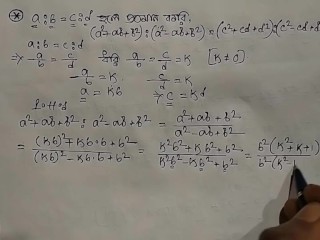 * a:b = c:d হলে প্রমাণ করি,
(a²+ab+b²):(a²-ab+b²) = (c²+cd+d²):(c²-cd+d²)
a:b = c:d
⇒ a/b = c/d ধরি a/b = c/d = K [K≠0]
a/b = K, c/d = K
a = Kb ⇒ c = Kd
L.H.S
a²+ab+b² : a²-ab+b² = (a²+ab+b²)/(a²-ab+b²)
= ((Kb)²+Kb·b+b²)/((Kb)²-Kb·b+b²) = (K²b²+Kb²+b²)/(K²b²-Kb²+b²) = b²(K²+K+1)/b²(K²-